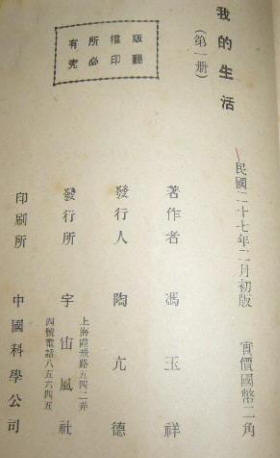 我的生活
(第一册)
民國二十七年二月初版 實價國幣二角
著作者 馮玉祥
發行人 陶亢德
發行所 宇宙風社
上海霞飛路五四二弄
四號電話八五六四五
印刷所 中國科學公司
版權所有
翻印必究